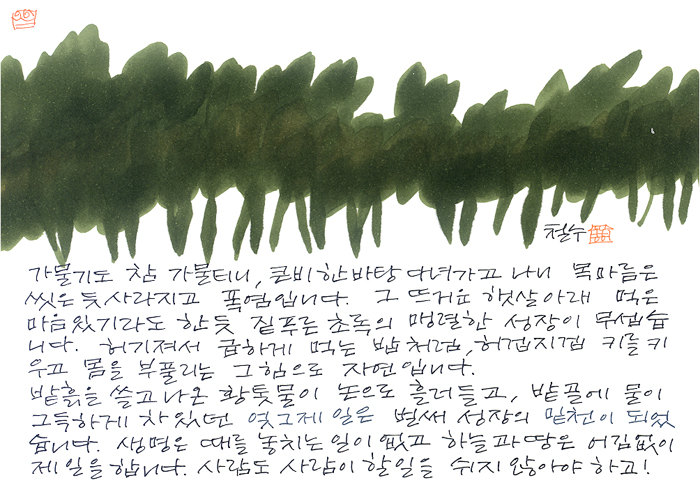 철수
가물기도 참 가물터니, 큰비 한바탕 다녀가고 나니 목마름은
씻은듯 사라지고 폭염입니다. 그 뜨거운 햇살아래 먹은
마음있기라도 한듯 짙푸른 초록의 맹렬한 성장이 무섭습
니다. 허기져서 급하게 먹는 밥처럼, 허겁지겁 키를 키
우고 몸을 부풀리는 그 힘으로 자연입니다.
밭흙을 쓸고 나온 황톳물이 논으로 흘러들고, 밭골에 물이
그득하게 차 있던 엊그제 일은 벌써 성장의 밑천이 되었
습니다. 생명은 때를 놓치는 일이 없고 하늘과 땅은 어김없이
제 일을 합니다. 사람도 사람이 할일을 쉬지 않아야 하고!